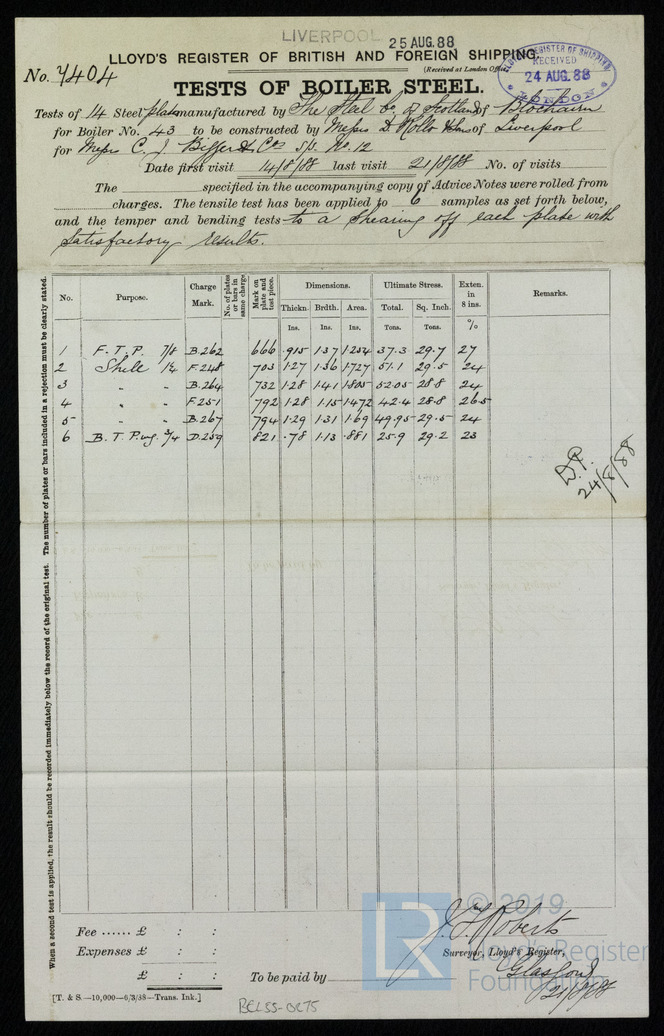 LIVERPOOL
25 AUG.88
LLOYD'S REGISTER OF BRITISH AND FOREIGN SHIPPING.
(Received at London Office
REGISTER OF SHIPPING
RECEIVED
24 AUG.88
LONDON
No. 7404
TESTS OF BOILER STEEL.
Tests of 14 Steel plates manufactured by The Steel Co. of Scotland of Blochairn
for Boiler No. 43 to be constructed by Messrs D. Rollo & Sons of Liverpool
for Messrs C. J. & Cos S/S. No. 12
Date first visit 14/8/88 last visit 21/8/88 No. of visits
The specified in the accompanying copy of Advice Notes were rolled from
charges. The tensile test has been applied to 6 samples as set forth below,
and the temper and bending tests to a shearing off each plate with
satisfactory results.
When a second test is applied, the result should be recorded immediately below the record of the original test. The number of plates or bars included in a rejection must be clearly stated.
No. Purpose. Charge Mark. No. of plates or bars in same charge Mark on plate and test piece. Dimensions. Ultimate Stress. Exten. in 8 ins. Remarks.
Thickn. Brdth. Area. Total. Sq. Inch.
Ins. Ins. Ins. Tons. Tons. %
1 F.T.P. 7/8 B.262 666 .915 1.37 1.254 37.3 29.7 27
2 Shell 1¼ F.248 703 1.27 1.36 1.727 51.1 29.5 24
3 " " B.264 732 1.28 1.41 1.805 52.05 28.8 24
4 " " F.251 792 1.28 1.15 1.472 42.4 28.8 26.5
5 " " B.267 794 1.29 1.31 1.69 49.95 29.5 24
6 B.T.P. 3/4 D.259 821 .78 1.13 .881 25.9 29.2 23
D.P.
24/8/88
© 2019
LR
Lloyd's Register
Foundation
Fee ...... £ : :
Expenses £ : :
£ : :
To be paid by
Roberts
Surveyor, Lloyd's Register,
Glasgow
21/8/88
[T. & S.—10,000—6/3/88—Trans. Ink.]